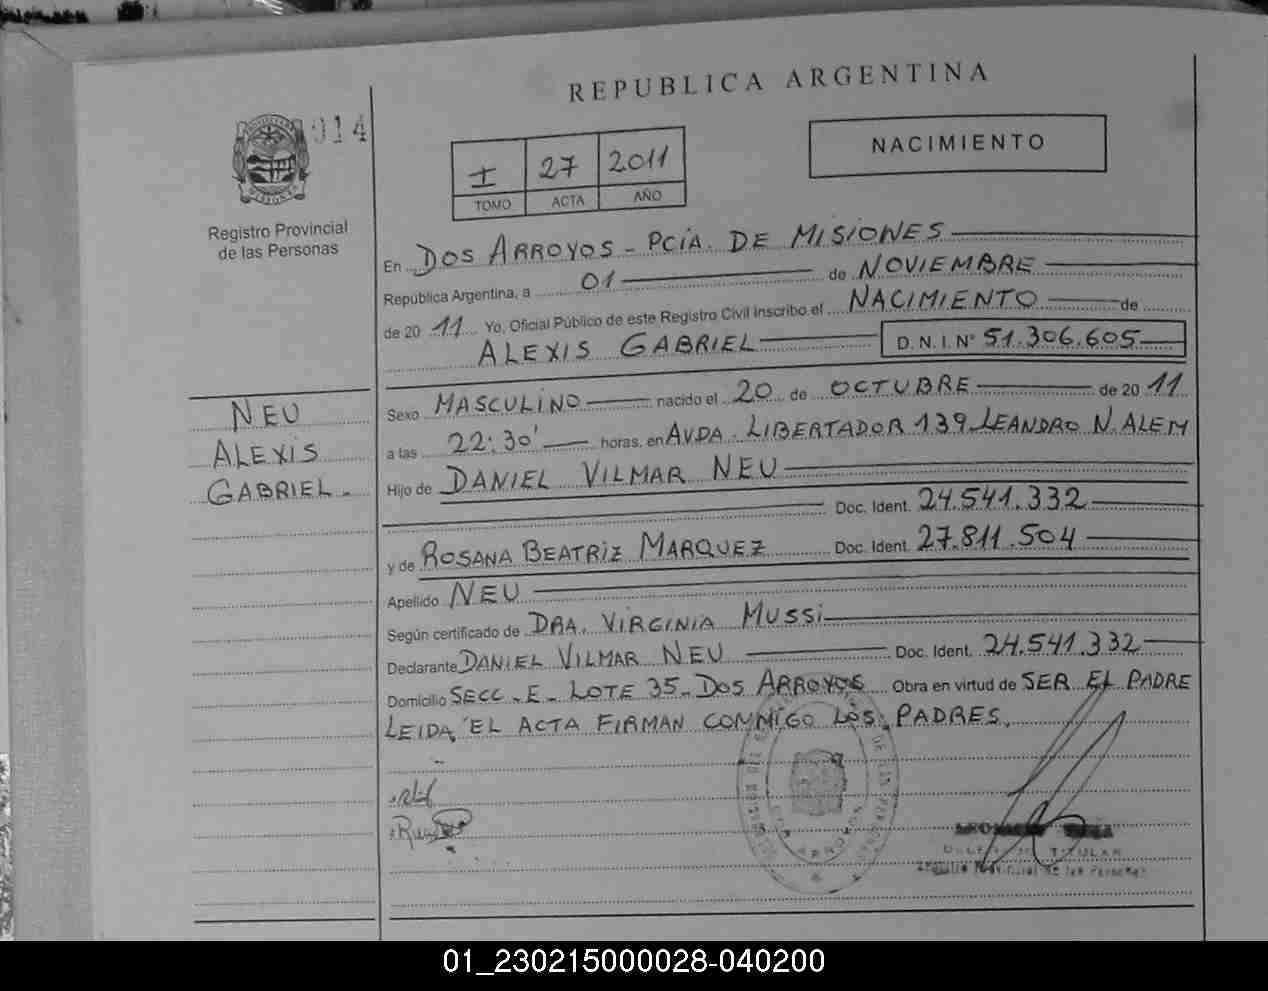 REPUBLICA ARGENTINA
014
I 27 2011
TOMO ACTA AÑO
NACIMIENTO
Registro Provincial
de las Personas
En DOS ARROYOS - PCIA. DE MISIONES
República Argentina, a 01 de NOVIEMBRE
de 2011 Yo, Oficial Público de este Registro Civil inscribo el NACIMIENTO de
ALEXIS GABRIEL D.N.I.Nº 51.306.605
NEU
ALEXIS
GABRIEL.
Sexo MASCULINO nacido el 20 de OCTUBRE de 2011
a las 22:30' horas, en AVDA. LIBERTADOR 139 LEANDRO N. ALEM
Hijo de DANIEL VILMAR NEU
Doc. Ident. 24.541.332
y de ROSANA BEATRIZ MARQUEZ Doc. Ident. 27.811.504
Apellido NEU
Según certificado de DRA. VIRGINIA MUSSI
Declarante DANIEL VILMAR NEU Doc. Ident. 24.541.332
Domicilio SECC - E - LOTE 35 - DOS ARROYOS Obra en virtud de SER EL PADRE
LEIDA EL ACTA FIRMAN CONMIGO LOS PADRES.
DOS ARROYOS
TITULAR
01_230215000028-040200